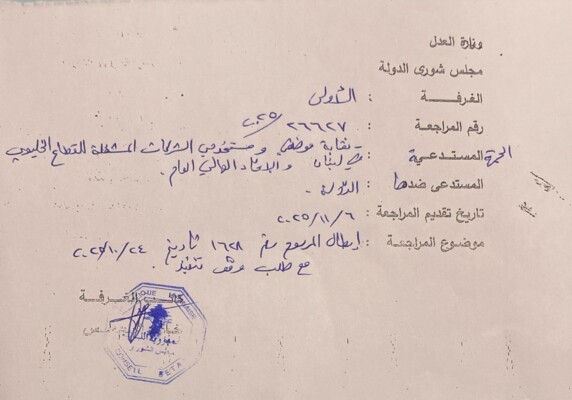 وزارة العدل
مجلس شورى الدولة
الغرفـــــة : الأولى
رقم المراجعة : ٢٦٦٢٧/٢٠٢٥
الجهة المستدعيـة : - نقابة موظفي ومستخدمي الشركات المشغلة للقطاع الخليوي
في لبنان والاتحاد العمالي العام.
المستدعى ضدها : الدولة.
تاريخ تقديم المراجعة : ٢٠٢٥/١١/٦
موضوع المراجعـة : إبطال المرسوم رقم ١٦٢٨ تاريخ ٢٤/١٠/
مع طلب وقف تنفيذ.
كاتب الغرفـة
CONSEIL ETAT